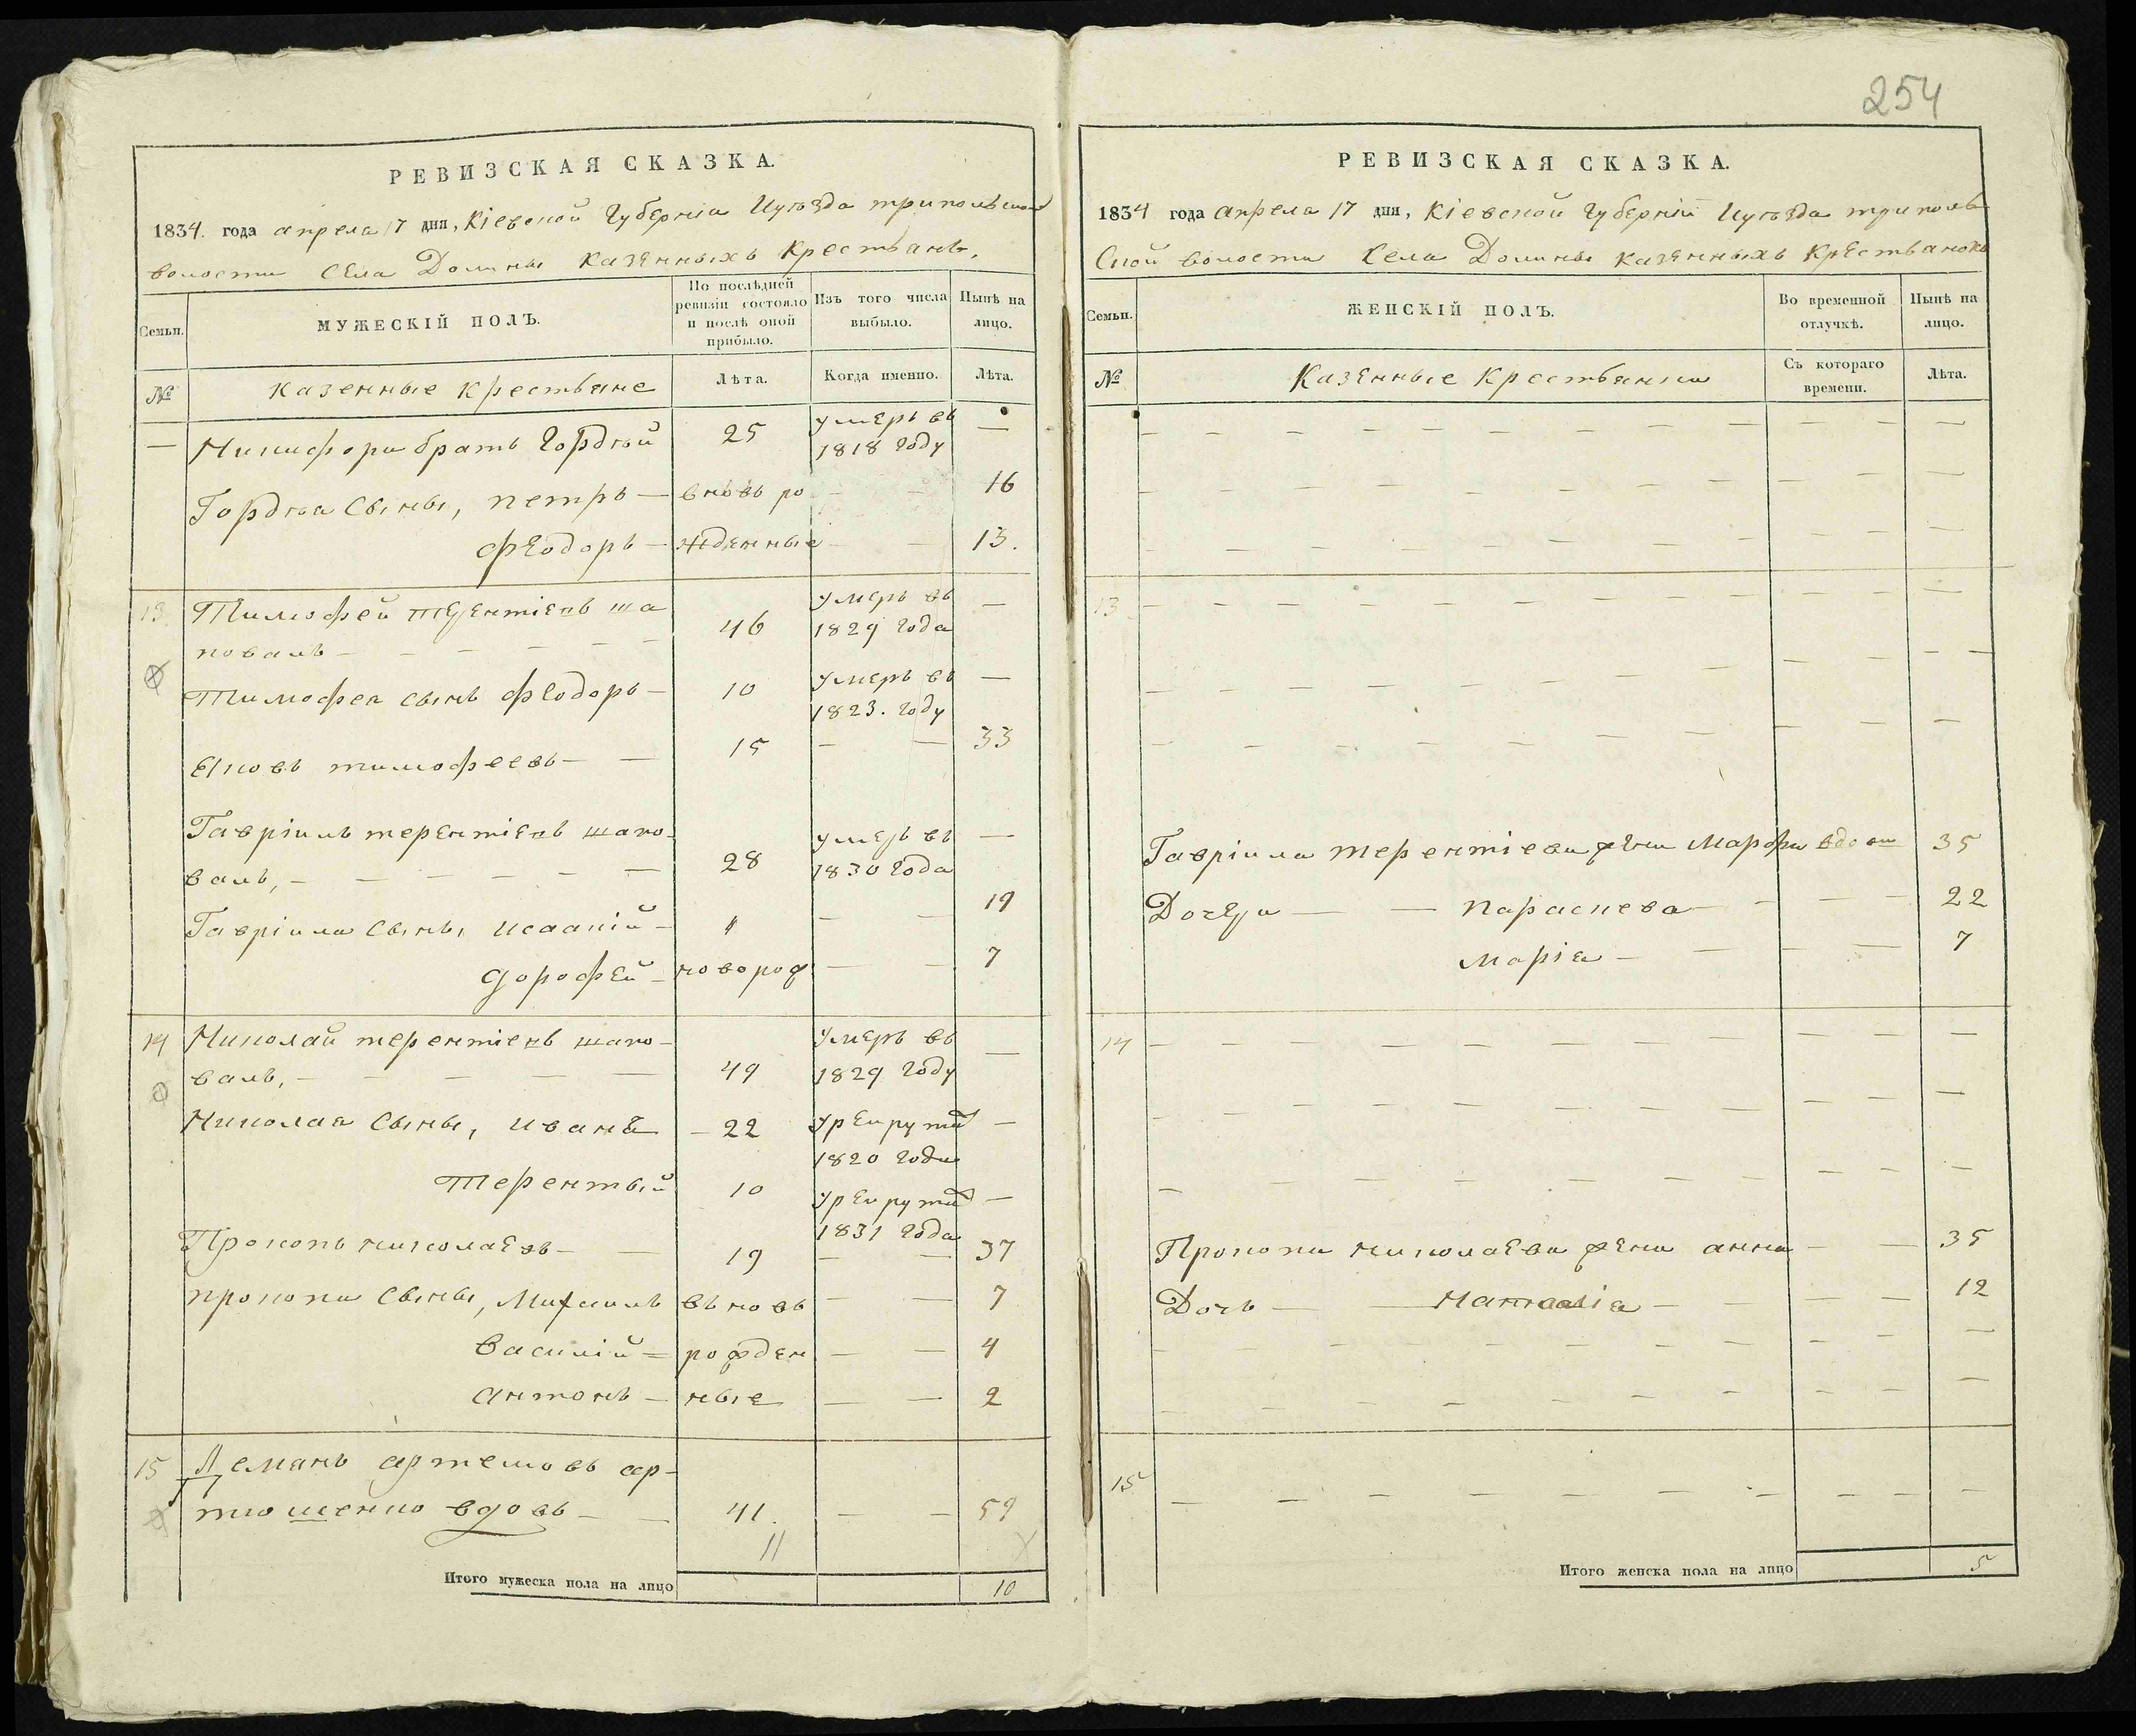 254
РЕВИЗСКАЯ СКАЗКА.
1834. года апреля 17 дня, Кіевской Губерніи Иуѣзда трипольской
волости Села Долины Казенныхъ Крестьянъ.
Семьи.
МУЖЕСКІЙ ПОЛЪ.
По послѣдней
ревизіи состояло
и послѣ оной
прибыло.
Изъ того числа
выбыло.
Нынѣ на
лицо.
№
Казенные Крестьяне
Лѣта.
Когда именно.
Лѣта.
— Никифора братъ Гордѣй 25 умеръ въ —
1818 году
Гордѣя Сыны, петръ — вновь ро — — 16
феодоръ — жденные — — 13.
13. Тимофей терентіевъ ша 46 умеръ въ —
повалъ — — — — — 1829 года
Тимофея сынъ феодоръ — 10 умеръ въ —
1823. году
Яковъ тимофеевъ — — 15 — — 33
Гавріилъ терентіевъ шапо- умеръ въ —
валъ, — — — — — — 28 1830 года
Гавріила Сыны Исаакій — 4 — — 19
дорофей — новорож — — 7
14 Николай терентіевъ шапо- Умеръ въ —
валъ, — — — — — 49 1829 году
Николая Сыны, иванъ — 22 Урекруты —
1820 года
терентьий 10 Урекруты —
1831 года
Прокопъ николаевъ — — 19 — — 37
прокопа Сыны, Михаилъ вьновь — — 7
Василій — рожден — — 4
антонъ — ные — — 2
15 Демянъ артемовъ ар-
тюшенко вдовъ — — 41. — — 59
11
Итого мужеска пола на лицо 10
РЕВИЗСКАЯ СКАЗКА.
1834 года апреля 17 дня, Кіевской Губерніи Иуѣзда триполь
ской волости Села Долины казенныхъ Крестьянокъ
Семьи.
ЖЕНСКІЙ ПОЛЪ.
Во временной
отлучкѣ.
Нынѣ на
лицо.
№
Казенные Крестьянки
Съ котораго
времени.
Лѣта.
13
Гавріила терентіева жена Марфа вдова 35
Дочери — — параскева — — — 22
Марія — — — — 7
14
Прокопа николаева жена анна — — 35
Дочь — — Наталія — — — — 12
15
Итого женска пола на лицо 5